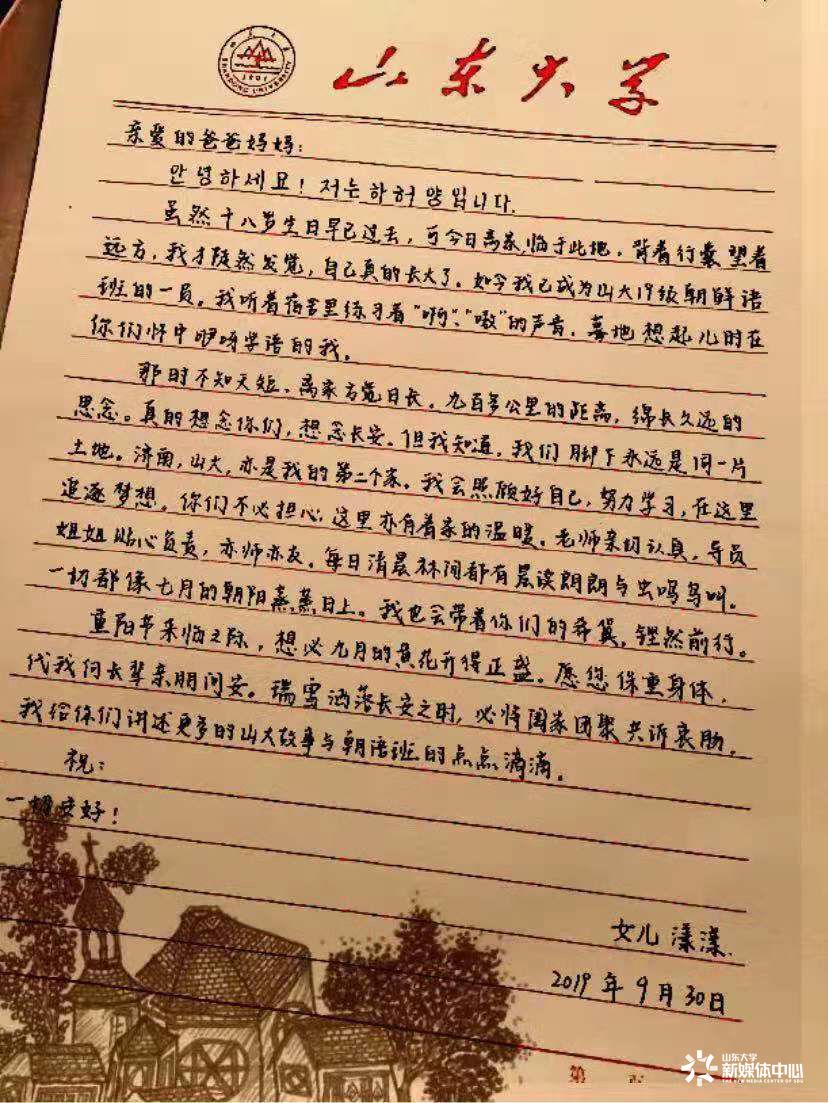 SHANDONG UNIVERSITY
1901
山东大学
亲爱的爸爸妈妈：
안녕하세요！저는 하허양입니다.
虽然十八岁生日早已过去，可今日离家，临于此地，背着行囊，望着
远方，我才陡然发觉，自己真的长大了。如今我已成为山大19级朝鲜语
班的一员。我听着宿舍里练习着“啊”、“嗷”的声音，蓦地想起儿时在
你们怀中咿呀学语的我。
那时不知天短，离家方觉日长。九百多公里的距离，绵长久远的
思念。真的想念你们，想念长安。但我知道，我们脚下永远是同一片
土地。济南，山大，亦是我的第二个家。我会照顾好自己，努力学习，在这里
追逐梦想。你们不必担心，这里亦有着家的温暖。老师亲切认真，导员
姐姐贴心负责，亦师亦友。每日清晨林间都有晨读朗朗与虫鸣鸟叫。
一切都像七月的朝阳蒸蒸日上。我也会带着你们的希冀，铿然前行。
重阳节来临之际，想必九月的黄花开得正盛。愿您保重身体，
代我向长辈亲朋问安。瑞雪洒落长安之时，必将阖家团聚共诉衷肠，
我给你们讲述更多的山大故事与朝语班的点点滴滴。
祝：
一切安好！
女儿 漾漾
2019年9月30日
第
山东大学
新媒体中心
THE NEW MEDIA CENTER OF SDU